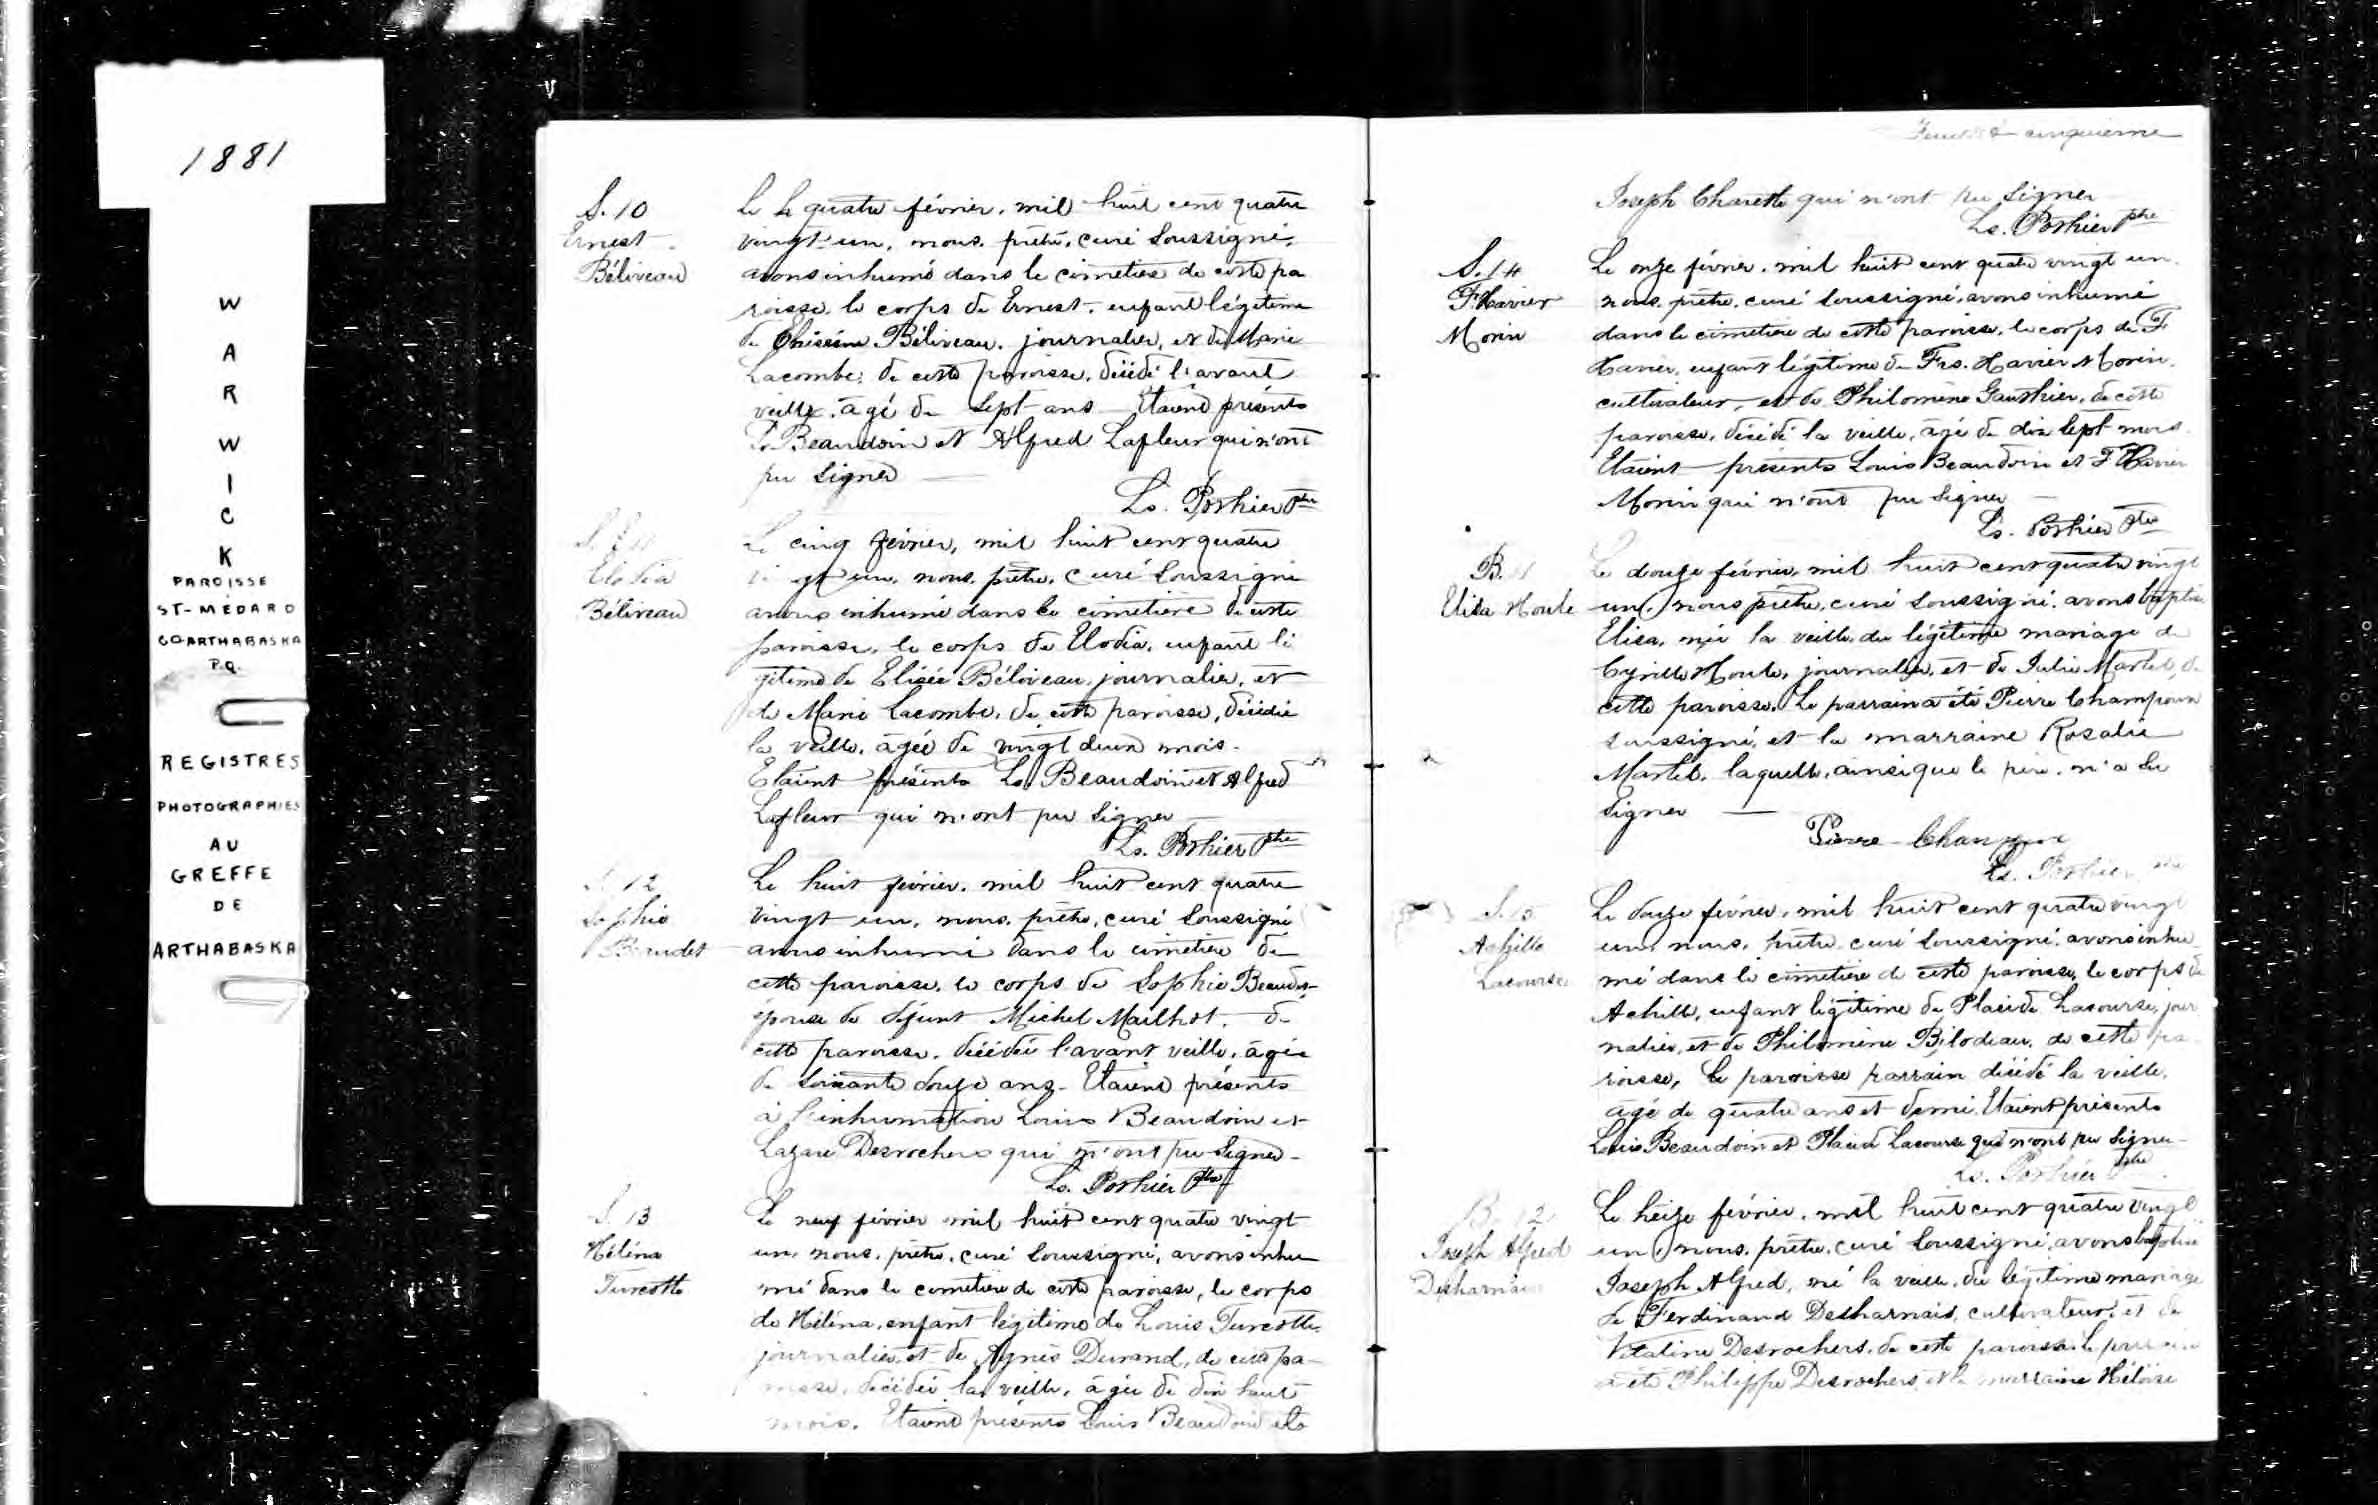 1881
W
A
R
W
I
C
K
PAROISSE
ST-MÉDARD
CO ARTHABASKA
P.Q.
REGISTRES
PHOTOGRAPHIES
AU
GREFFE
DE
ARTHABASKA
S. 10
Ernest
Béliveau
Le quatre février, mil huit cent quatre
vingt un, nous, prêtre, curé soussigné,
avons inhumé dans le cimetière de cette pa
roisse, le corps de Ernest, enfant légitime
de Béliveau, journalier, et de Marie
Lacombe, de cette paroisse, décédé l'avant
veille, âgé de sept ans Etaient présents
Ls Beaudoin et Alfred Lafleur qui n'ont
pu signer
Ls. Pothier Ptre
S. 11
Elodia
Béliveau
Le cinq février, mil huit cent quatre
vingt un, nous, prêtre, curé soussigné
avons inhumé dans le cimetière de cette
paroisse, le corps de Elodia, enfant lé
gitime de Elisée Béliveau, journalier, et
de Marie Lacombe, de cette paroisse, décédée
la veille, âgée de vingt deux mois.
Etaient présents Ls Beaudoin et Alfred
Lafleur qui n'ont pu signer
Ls. Pothier Ptre
S. 12
Sophie
Beaudet
Le huit février, mil huit cent quatre
vingt un, nous, prêtre, curé soussigné
avons inhumé dans le cimetière de
cette paroisse, le corps de Sophie Beaudet
épouse de défunt Michel Mailhot, de
cette paroisse, décédée l'avant veille, âgée
de soixante douze ans. Etaient présents
à l'inhumation Louis Beaudoin et
Lazare Desrochers qui n'ont pu signer
Ls. Pothier Ptre
S. 13
Héléna
Turcotte
Le neuf février mil huit cent quatre vingt
un, nous, prêtre, curé soussigné, avons inhu
mé dans le cimetière de cette paroisse, le corps
de Héléna, enfant légitime de Louis Turcotte,
journalier, et de Agnès Durand, de cette pa-
roisse, décédée la veille, âgée de dix huit
mois. Etaient présents Louis Beaudoin et
Feuillet cinquième
Joseph Charette qui n'ont pu signer
Ls. Pothier Ptre
S. 14
F Xavier
Morin
Le onze février, mil huit cent quatre vingt un,
nous, prêtre, curé soussigné, avons inhumé
dans le cimetière de cette paroisse, le corps de F
Xavier, enfant légitime de Frs. Xavier Morin,
cultivateur, et de Philomène Gauthier, de cette
paroisse, décédé la veille, âgé de dix sept mois.
Etaient présents Louis Beaudoin et F Xavier
Morin qui n'ont pu signer
Ls. Pothier Ptre
B. 11
Elisa Houle
Le douze février, mil huit cent quatre vingt
un, nous prêtre, curé soussigné, avons baptisé
Elisa, née la veille, du légitime mariage de
Cyrille Houle, journalier, et de Julie Martel, de
cette paroisse. Le parrain a été Pierre Champoux
soussigné, et la marraine Rosalie
Martel, laquelle, ainsi que le père, n'a su
signer
Pierre Champoux
Ls. Pothier ptre
S. 15
Achille
Lacourse
Le douze février, mil huit cent quatre vingt
un, nous, prêtre, curé soussigné, avons inhu
mé dans le cimetière de cette paroisse, le corps de
Achille, enfant légitime de Placide Lacourse, jour
nalier, et de Philomène Bilodeau, de cette pa
roisse, le paroisse parrain décédé la veille,
âgé de quatre ans et demi. Etaient présents
Louis Beaudoin et Placide Lacourse qui n'ont pu signer
Ls. Pothier Ptre
B. 12
Joseph Alfred
Desharnais
Le seize février, mil huit cent quatre vingt
un, nous, prêtre, curé soussigné, avons baptisé
Joseph Alfred, né la veille, du légitime mariage
de Ferdinand Desharnais, cultivateur, et de
Vitaline Desrochers, de cette paroisse. Le parrain
a été Philippe Desrochers, et la marraine Héloïse